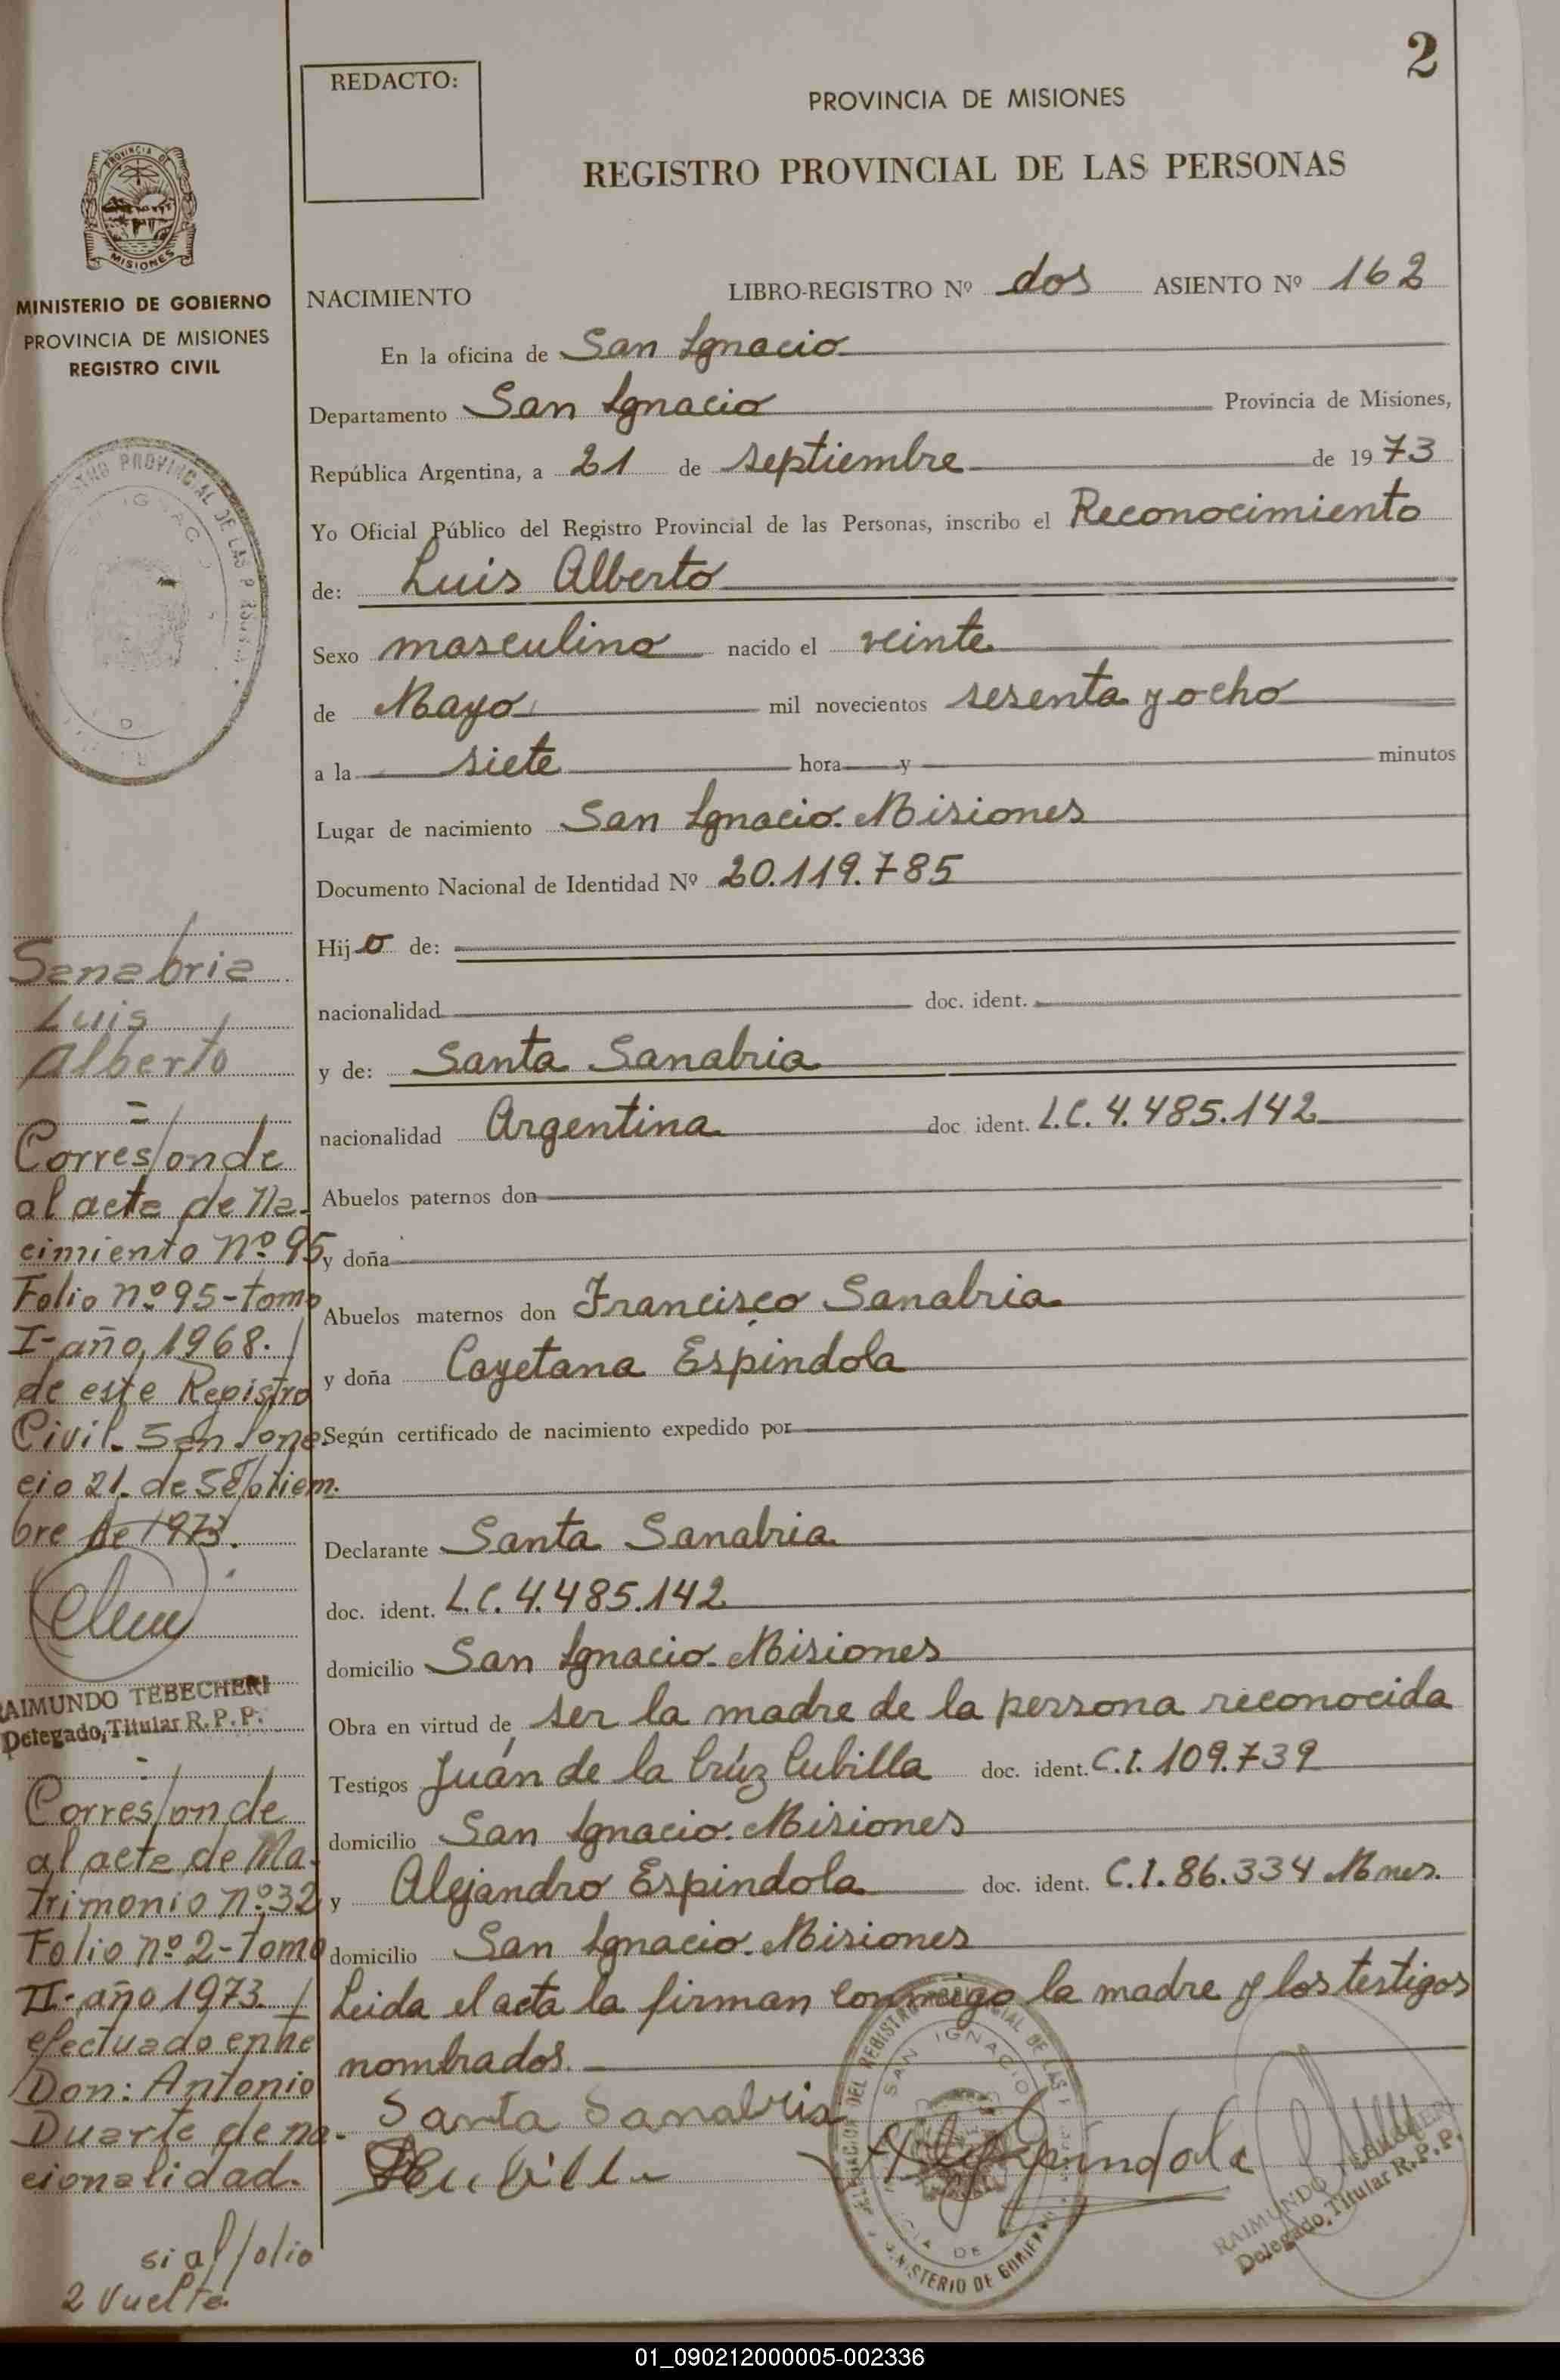 2
REDACTO:
PROVINCIA DE MISIONES
REGISTRO PROVINCIAL DE LAS PERSONAS
PROVINCIA DE
MISIONES
MINISTERIO DE GOBIERNO
PROVINCIA DE MISIONES
REGISTRO CIVIL
NACIMIENTO LIBRO-REGISTRO Nº dos ASIENTO Nº 162
En la oficina de San Ignacio
Departamento San Ignacio Provincia de Misiones,
República Argentina, a 21 de septiembre de 1973
Yo Oficial Público del Registro Provincial de las Personas, inscribo el Reconocimiento
de: Luis Alberto
Sexo masculino nacido el veinte
de Mayo mil novecientos sesenta y ocho
a la siete hora y minutos
Lugar de nacimiento San Ignacio. Misiones
Documento Nacional de Identidad Nº 20.119.785
Hijo de:
nacionalidad doc. ident.
y de: Santa Sanabria
nacionalidad Argentina doc ident. L.C. 4.485.142
Abuelos paternos don
y doña
Abuelos maternos don Francisco Sanabria
y doña Cayetana Espindola
Según certificado de nacimiento expedido por
Declarante Santa Sanabria
doc. ident. L.C. 4.485.142
domicilio San Ignacio. Misiones
Obra en virtud de ser la madre de la persona reconocida
Testigos Juán de la Crúz Cubilla doc. ident. C.I. 109.739
domicilio San Ignacio. Misiones
y Alejandro Espindola doc. ident. C.I. 86.334 Mnes.
domicilio San Ignacio. Misiones
Leida el acta la firman conmigo la madre y los testigos
nombrados.
Santa Sanabria
RAIMUNDO TEBECHERI
Delegado, Titular R.P.P.
Sanabria
Luis
Alberto
=
Corresponde
al acta de Na-
cimiento nº 95
Folio nº 95-tomo
I-año 1968.
de este Registro
Civil. San Igna
cio 21. de Septiem.
bre de 1973.
RAIMUNDO TEBECHERI
Delegado, Titular R.P.P.
Corresponde
al acta de Ma-
trimonio nº 32
Folio nº 2-Tomo
II-año 1973.
efectuado entre
Don: Antonio
Duarte de na-
cionalidad.
si al folio
2 Vuelta
01_090212000005-002336